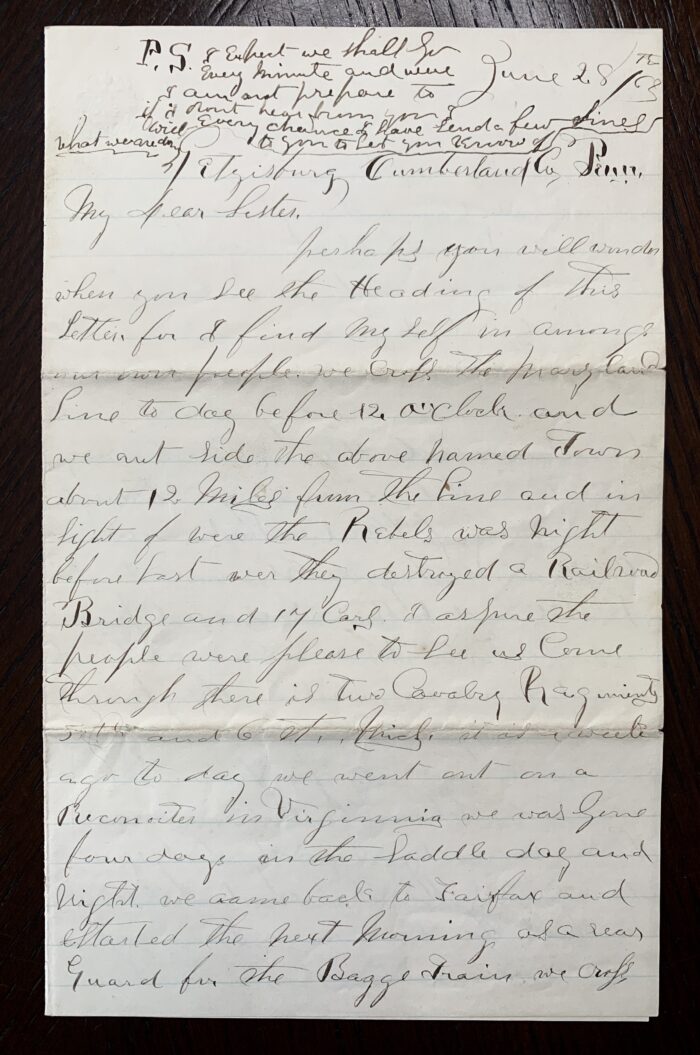 P.S. I Expect we shall Go
Every Minute and were
I am not prepare to
if I dont hear from you I
Will Every chance I Have Send a few Lines
to you to Let you Know of
what we are doing
June 28th / 63
Getysburg Cumberland Co, Penn.
My Dear Sister,
perhaps you will wonder
when you See the Heading of this
Letter for I find My Self in amongs
our own people. we Cross The Maryland
Line to day before 12, O'Clock and
we out Side the above named Town
about 12 Miles from the Line and in
Sight of were the Rebels was Night
before Last wer they destroyed a Railroad
Bridge and 17 Cars. I aspure the
people were please to See us Come
through there is two Cavalry Ragiments
5th and 6 th, Mich. it is a week
ago to day we went out on a
Reconoiter in Virginnia we was Gone
four days in the Saddle day and
Night. we came back to Fairfax and
Started the next Morning as a rear
Guard for the Bagge Train we Cross